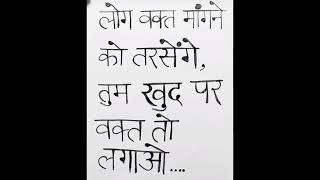 लोग वक्त मांगने
को तरसेंगे,
तुम खुद पर
वक्त तो
लगाओ....